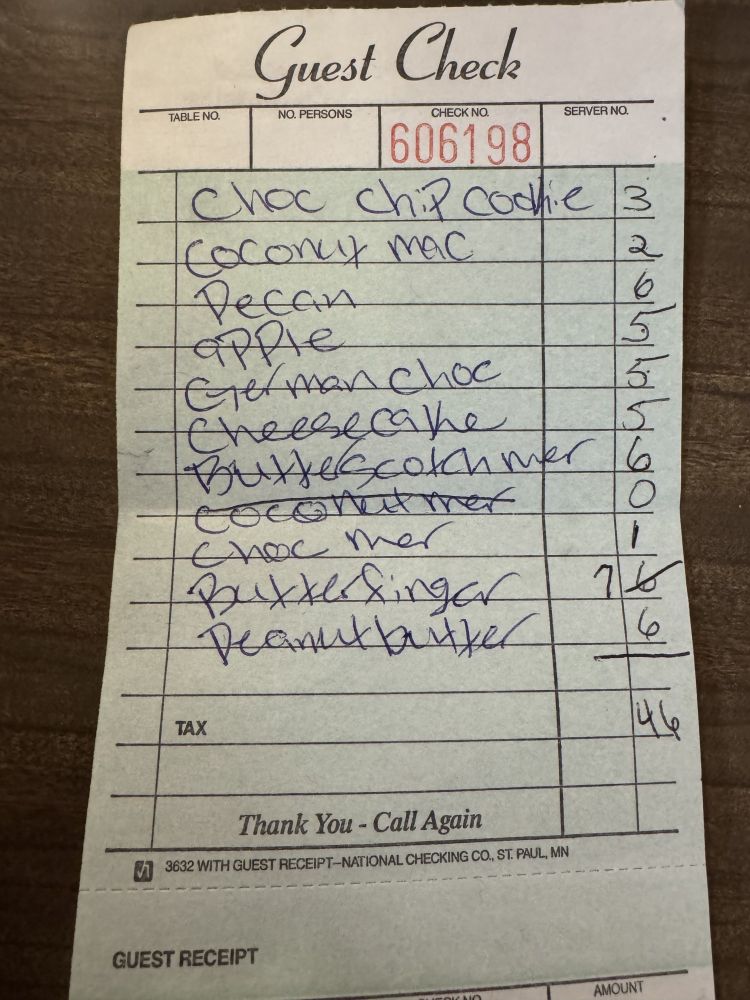 Guest Check
TABLE NO. NO. PERSONS CHECK NO. SERVER NO.
606198
Choc Chip Cookie 3
Coconut mac 2
Pecan 6
apple 5
German Choc 5
Cheesecake 5
Butterscotch mer 6
coconut mer 0
Choc mer 1
Butterfinger 7 6
Peanutbutter 6
TAX 46
Thank You - Call Again
3632 WITH GUEST RECEIPT–NATIONAL CHECKING CO., ST. PAUL, MN
GUEST RECEIPT
CHECK NO. AMOUNT